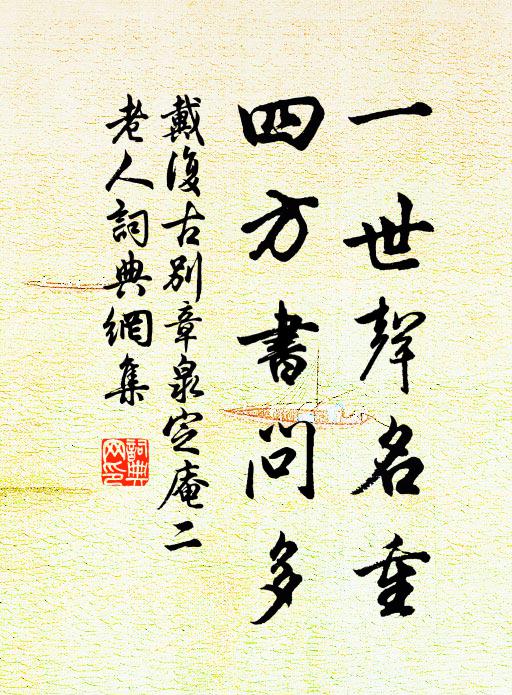 一世聲名重
四方書問多
戴復古別章泉定庵二
老人詞典網集
詞典
网印